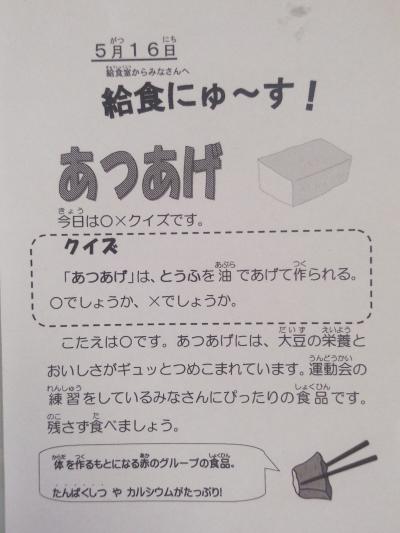 5月16日
給食室からみなさんへ
給食にゅ～す！
あつあげ
今日は○×クイズです。
クイズ
「あつあげ」は、とうふを油であげて作られる。
○でしょうか、×でしょうか。
こたえは○です。あつあげには、大豆の栄養と
おいしさがギュッとつめこまれています。運動会の
練習をしているみなさんにぴったりの食品です。
残さず食べましょう。
体を作るもとになる赤のグループの食品。
たんぱくしつ や カルシウムがたっぷり!